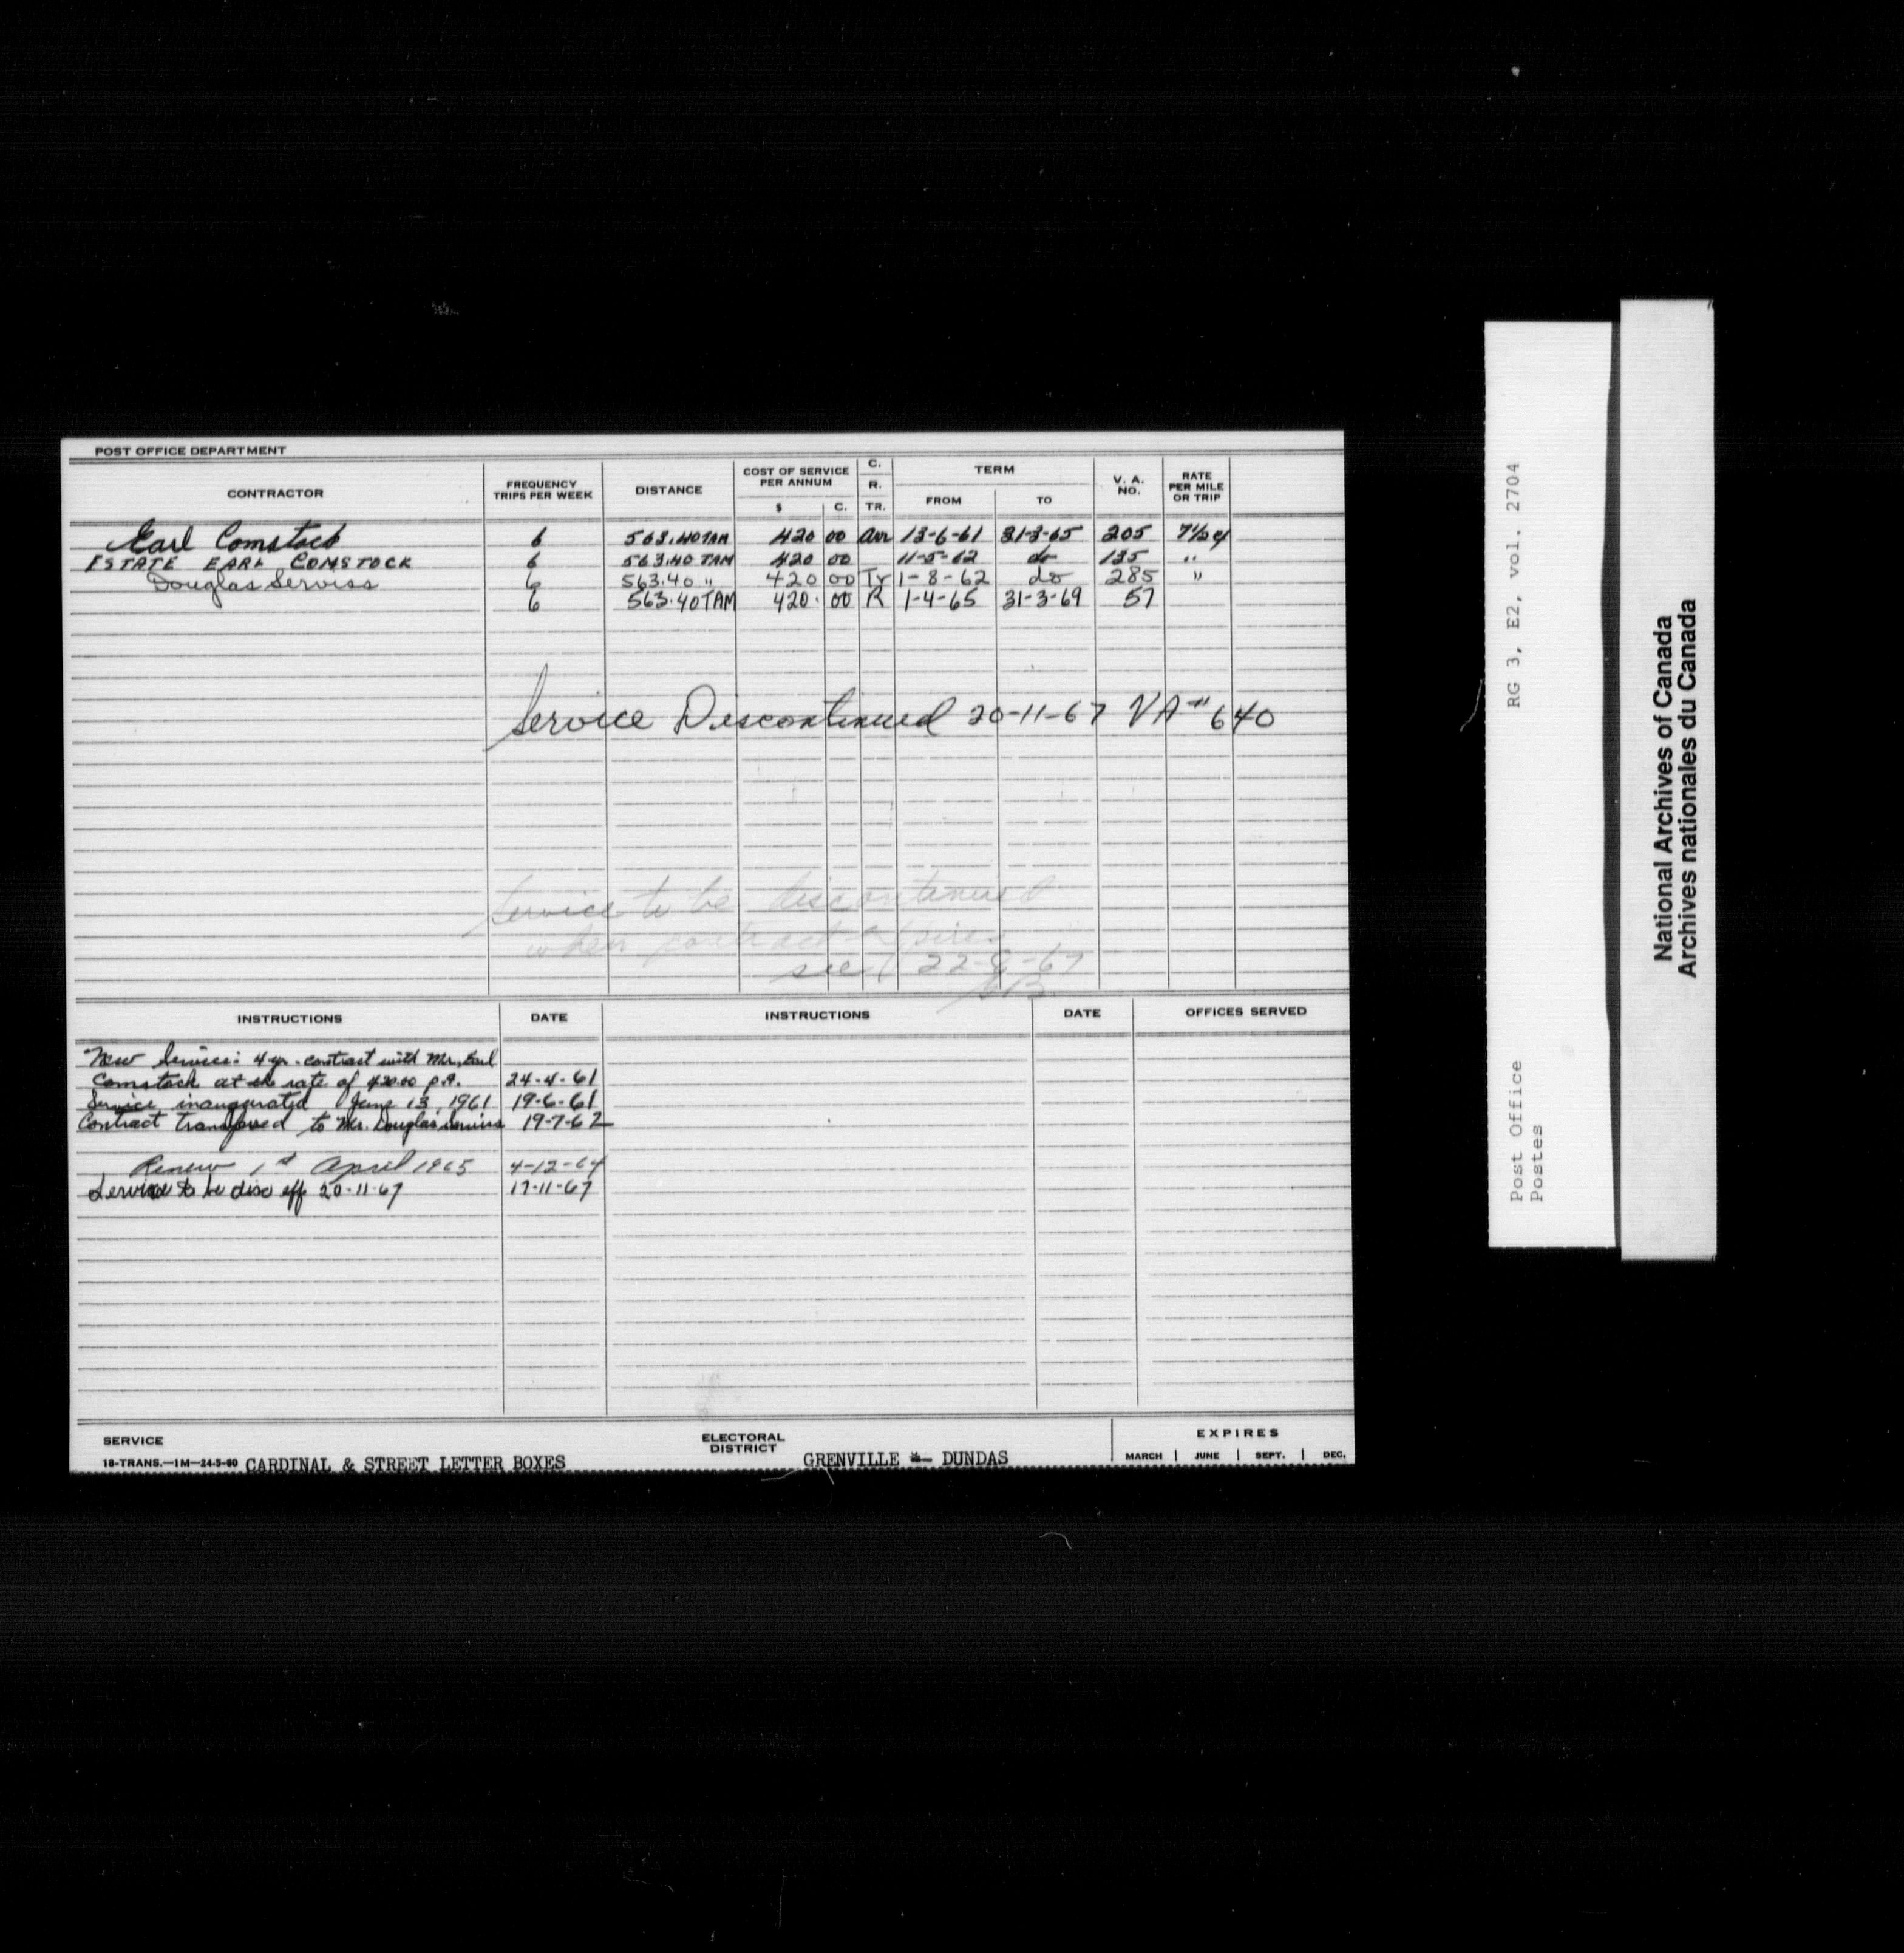 POST OFFICE DEPARTMENT
CONTRACTOR FREQUENCY TRIPS PER WEEK DISTANCE COST OF SERVICE PER ANNUM $ C. C. R. TR. TERM FROM TO V. A. NO. RATE PER MILE OR TRIP
Earl Comstock 6 563.40 TAM 420 00 13-6-61 31-3-65 205 7½¢
ESTATE EARL COMSTOCK 6 563.40 TAM 420 00 11-5-62 do 135 "
Douglas Serviss 6 563.40 " 420 00 Tr 1-8-62 do 285 "
6 563.40 TAM 420. 00 R 1-4-65 31-3-69 57
Service Discontinued 20-11-67 VA # 640
Service to be discontinued
when contract expires
see 22-8-67
INSTRUCTIONS DATE INSTRUCTIONS DATE OFFICES SERVED
New Service: 4 yr. contract with Mr. Earl
Comstock at the rate of $420.00 p.a. 24-4-61
Service inaugurated June 13, 1961 19-6-61
Contract transfered to Mr. Douglas Serviss 19-7-62
Renew 1st April 1965 4-12-64
Service to be disc eff 20-11-67 17-11-67
SERVICE CARDINAL & STREET LETTER BOXES
ELECTORAL DISTRICT GRENVILLE - DUNDAS
EXPIRES
MARCH | JUNE | SEPT. | DEC.
18-TRANS.—1M—24-5-60
RG 3, E2, vol. 2704
Post Office
Postes
National Archives of Canada
Archives nationales du Canada